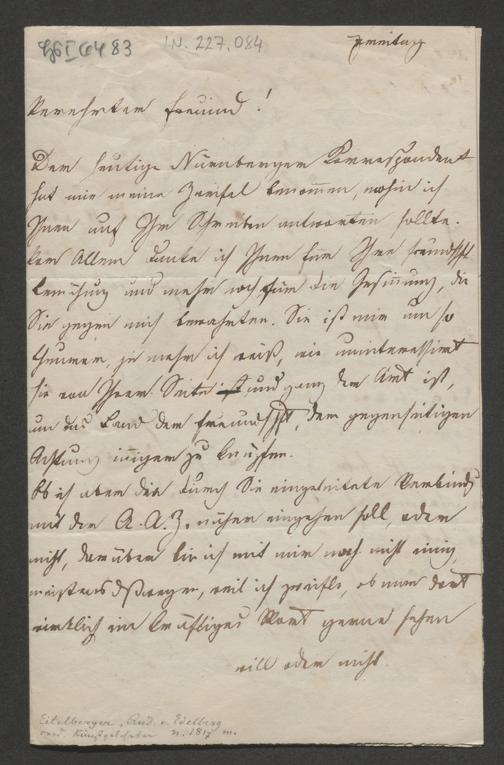 I.N. 227.084
Freitag
Verehrter Freund!
Der heutige Nürnberger Korrespondent
hat mir meine Zweifel benommen, wohin ich
Ihnen auf Ihr Schreiben antworten sollte.
Vor Allem danke ich Ihnen für Ihre freundschftl
Bemühung und mehr noch für die Gesinnung, die
Sie gegen mich bewahrten. Sie ist mir um so
theurer, je mehr ich weiß, wie uninteressirt
sie von Ihrer Seite und ganz der Art ist,
um das Band der Freundschft, der gegenseitigen
Achtung inniger zu knüpfen.
Ob ich aber die durch Sie eingeleitete Verbindg
mit der A. A. Z. näher eingehen soll oder
nicht, darüber bin ich mit mir noch nicht einig,
meistens deßwegen, weil ich zweifle, ob man dort
wirklich ein kräftiges Wort gerne sehen
will oder nicht.
Eitelberger, Rud. v. Edelberg
Kunstgelehrter n. 1817